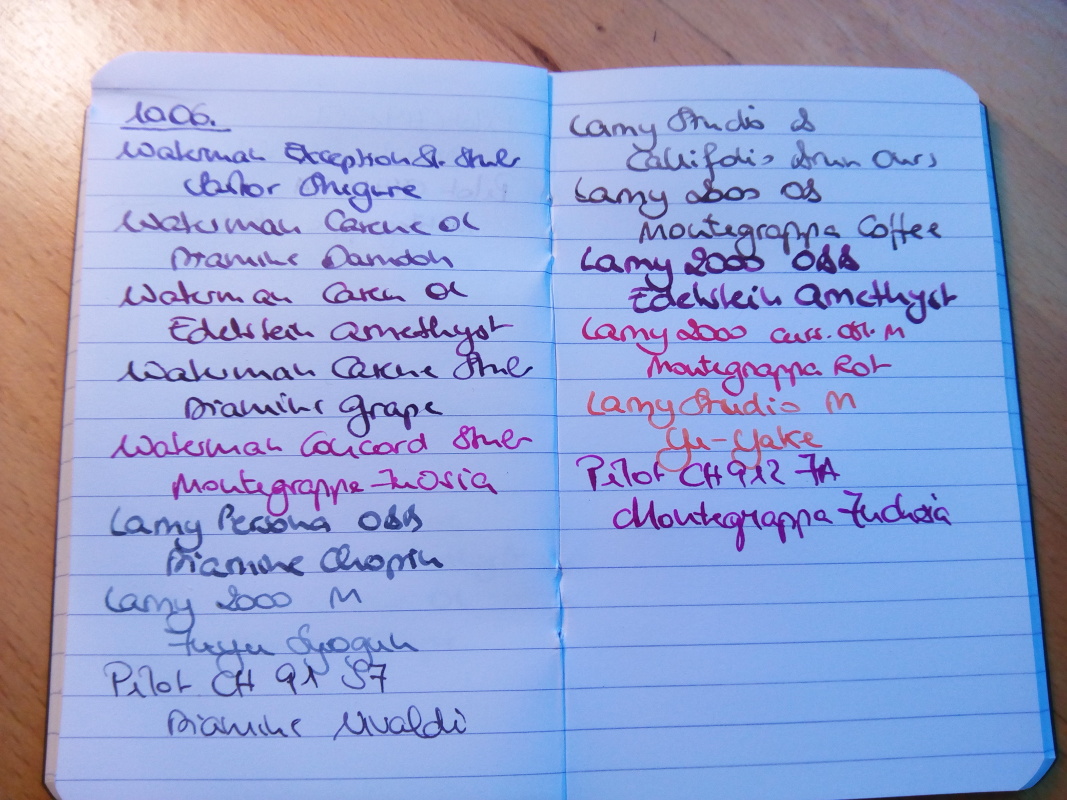 10.06.
Waterman Exception St. Stub
Sailor Shigure
Waterman Carene OM
Diamine Damson
Waterman Carene OM
Edelstein Amethyst
Waterman Carene Stub
Diamine Grape
Waterman Concord Stub
Montegrappa Fuchsia
Lamy Persona OBB
Diamine Chopin
Lamy 2000 M
Fuyu Syogun
Pilot CH 91 S7
Diamine Vivaldi
Lamy Studio B
Callifolio Brun Ours
Lamy 2000 OB
Montegrappa Coffee
Lamy 2000 OBB
Edelstein Amethyst
Lamy 2000 curs. obl. M
Montegrappa Rot
Lamy Studio M
Yu-Yake
Pilot CH 912 FA
Montegrappa Fuchsia